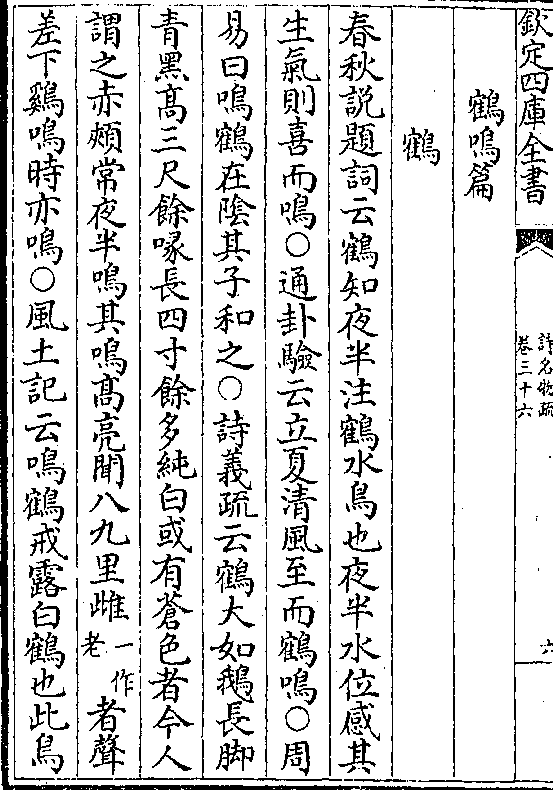 欽定四庫全書
詩名物疏
卷三十六
六
鶴鳴篇
鶴
春秋説題詞云鶴知夜半注鶴水鳥也夜半水位感其
生氣則喜而鳴○通卦驗云立夏清風至而鶴鳴○周
易曰鳴鶴在陰其子和之○詩義疏云鶴大如鵝長脚
青黑髙三尺餘喙長四寸餘多純白或有蒼色者今人
謂之赤頰常夜半鳴其鳴髙亮聞八九里雌一作老者聲
差下鷄鳴時亦鳴○風土記云鳴鶴戒露白鶴也此鳥